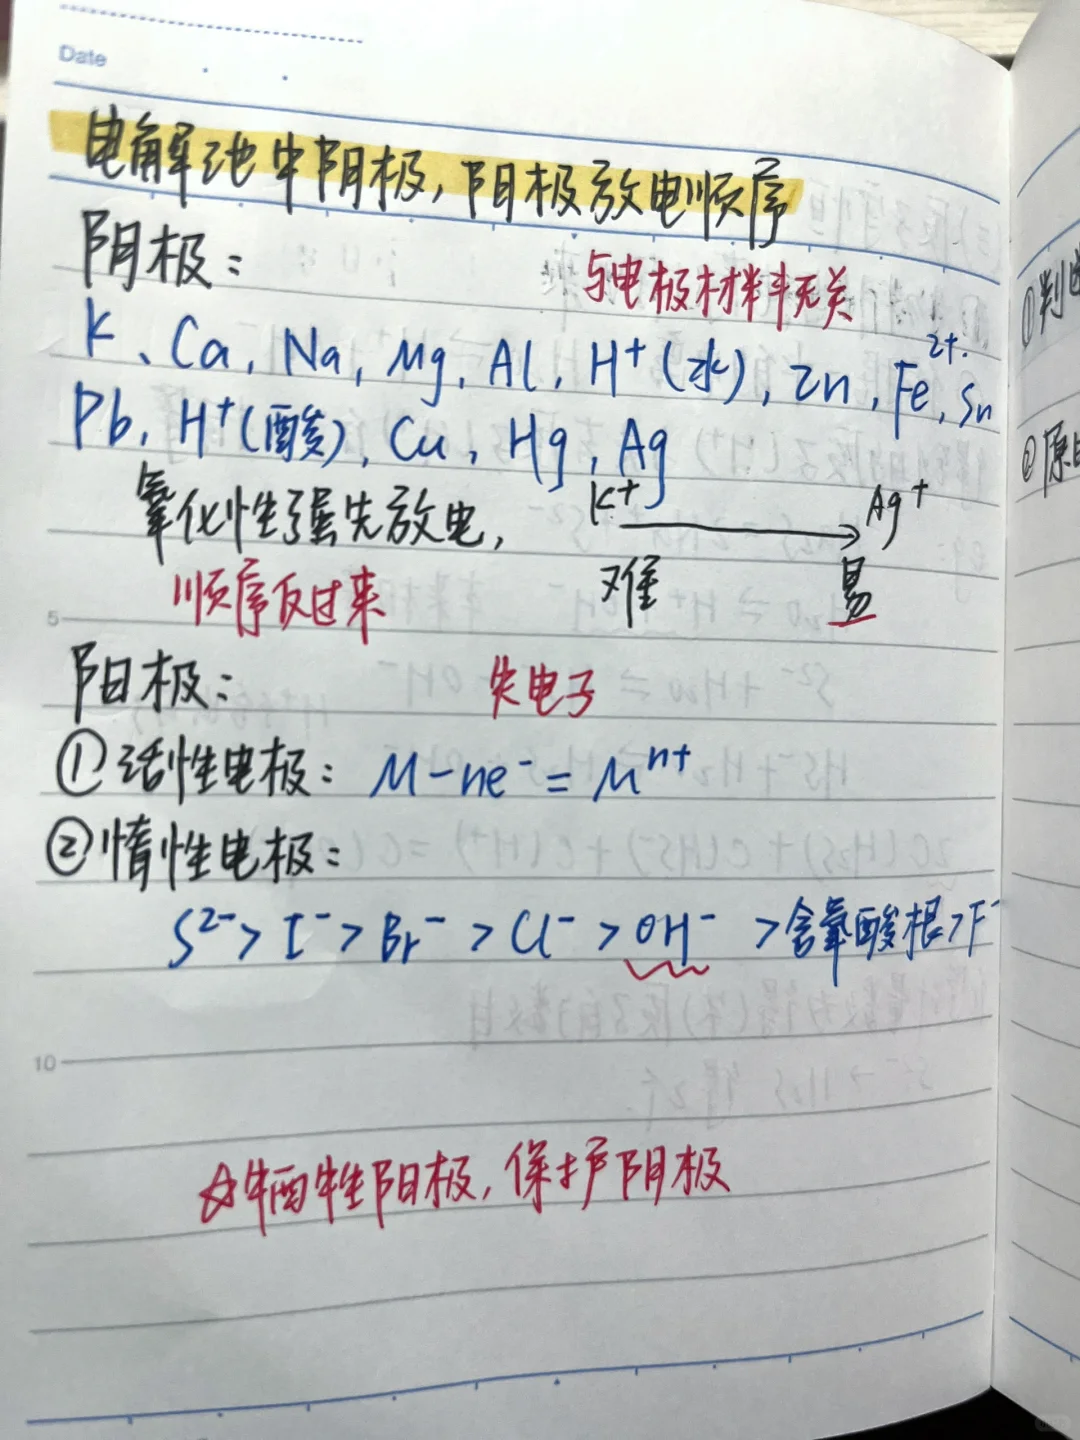 Date
电解池中阴极,阳极放电顺序
阴极:
与电极材料无关
K、Ca, Na, Mg, Al, H⁺(水), Zn, Fe²⁺, Sn
Pb, H⁺(酸), Cu, Hg, Ag
氧化性强先放电, K⁺ → Ag⁺
顺序反过来 难 易
5
阳极: 失电子
①活性电极: M-ne⁻=Mⁿ⁺
②惰性电极:
S²⁻>I⁻>Br⁻>Cl⁻>OH⁻>含氧酸根>F⁻
10
☆牺牲阳极,保护阴极
①判
②原